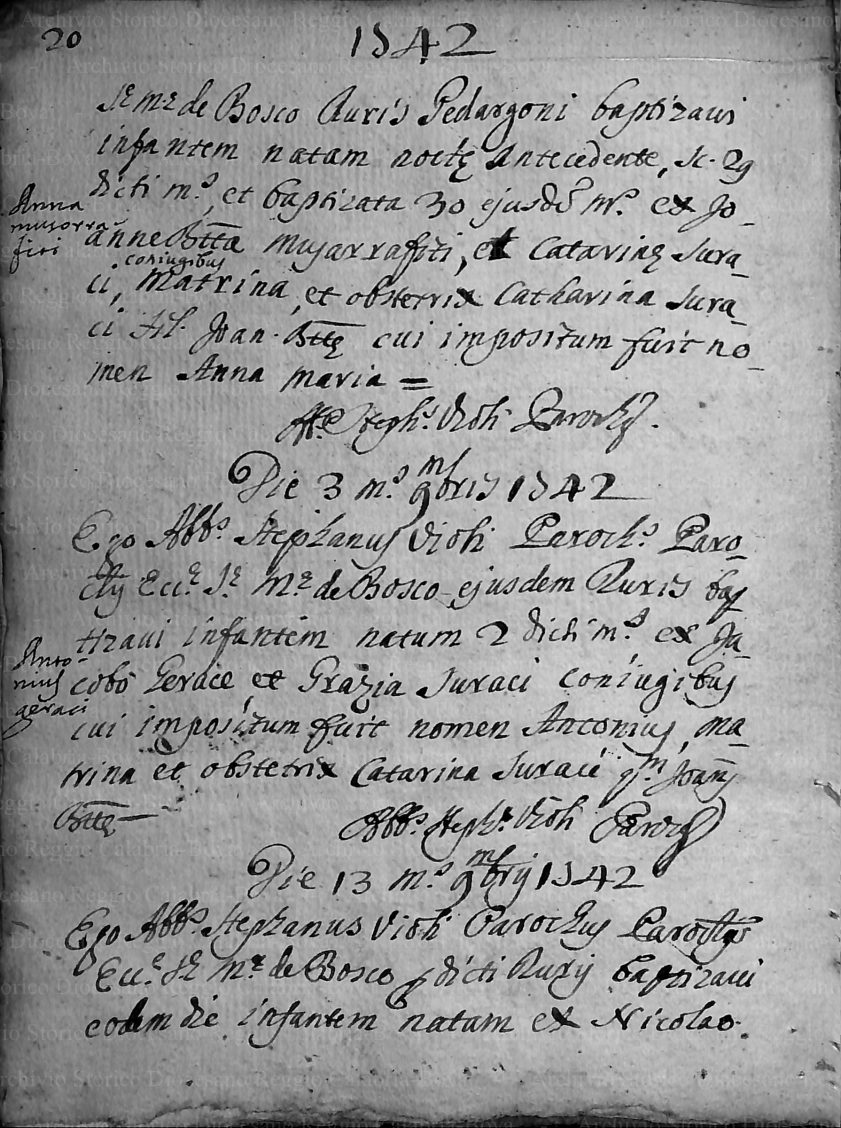 20
1742
Sæ Mæ de Bosco Ruris Pedargoni baptizavi
infantem natam nocte antecedente, sc. 29
dicti m.s, et baptizata 30 ejusdē m.s ex Jo-
Anna
musorra-
fiti
anne Bttā Musarrafiti, et Catarinę Sura-
coniugibus
ci, Matrina, et obstetrix Catharina Sura-
ci Fil. Joan. Bttę cui impositum fuit no-
men Anna Maria =
Abb.s Steph.s Violi Paroch.s
Die 3 m.s 9bris 1742
Ego Abb.s Stephanus Violi Paroch.s Paro-
Ecc.æ S.æ M.æ de Bosco ejusdem Ruris bap-
tizavi infantem natum 2 dicti m.s ex Ja-
Anto-
nius
geraci
cobo Gerace, et Grazia Suraci coniugibus
cui impositum fuit nomen Antonius, ma-
trina et obstetrix Catarina Suraci q.m Joan̄s
Bttę
Abb.s Steph.s Violi Paroch.s
Die 13 m.s 9bris 1742
Ego Abb.s Stephanus Violi Parochus
Ecc.æ S.æ M.æ de Bosco dicti Ruris baptizavi
eodem die infantem natam ex Nicolao